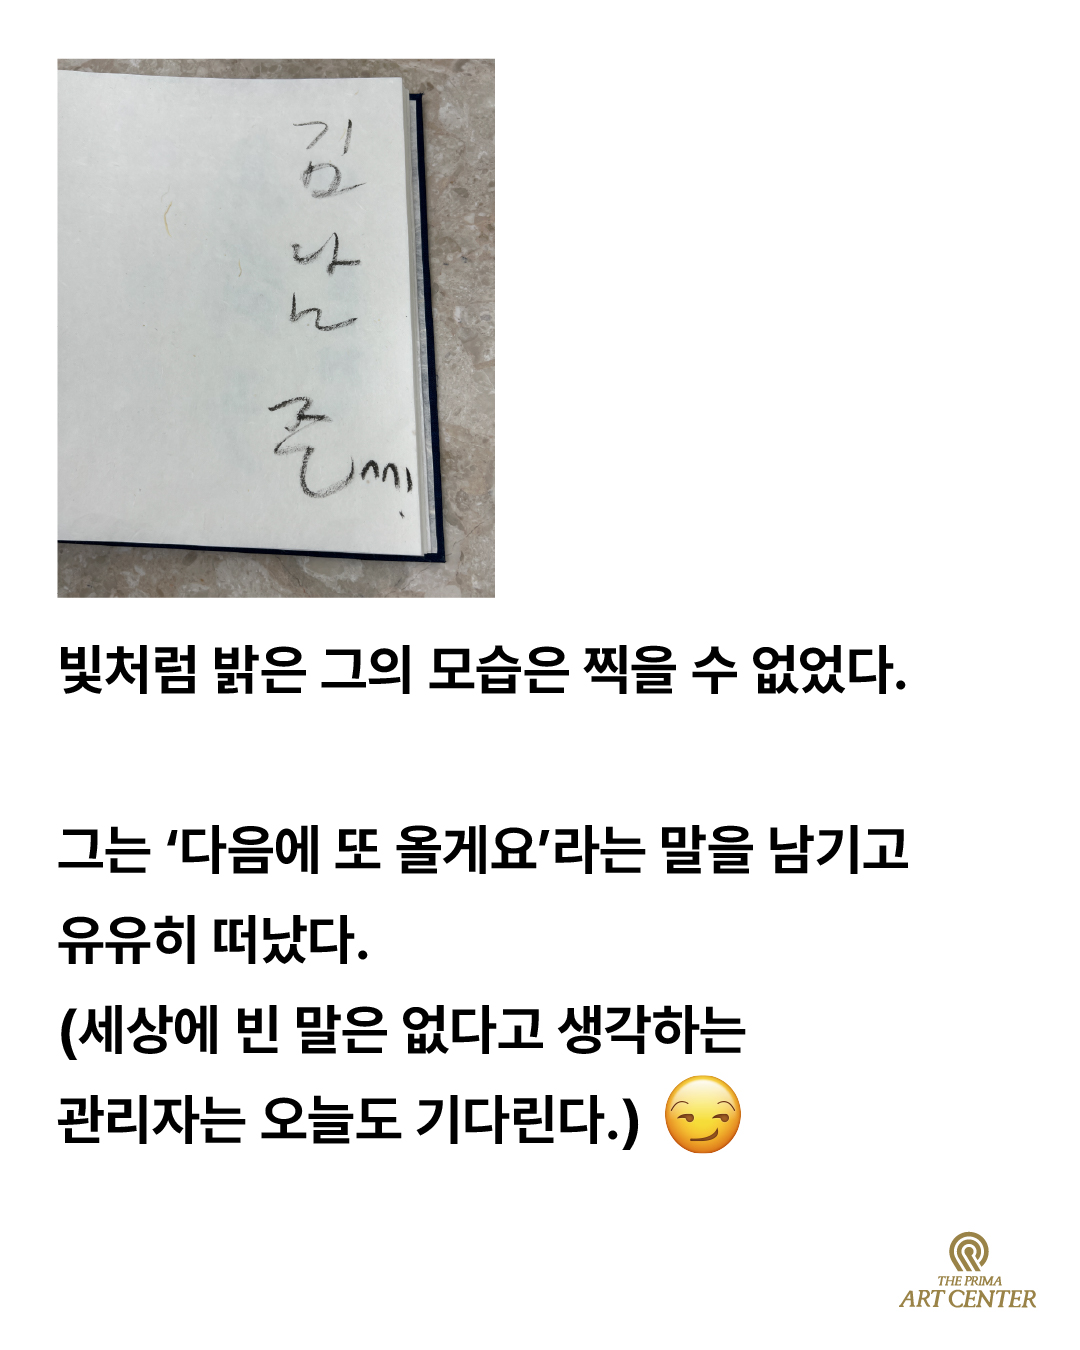 김
난
준
빛처럼 밝은 그의 모습은 찍을 수 없었다.
그는 ‘다음에 또 올게요’라는 말을 남기고
유유히 떠났다.
(세상에 빈 말은 없다고 생각하는
관리자는 오늘도 기다린다.)
THE PRIMA
ART CENTER